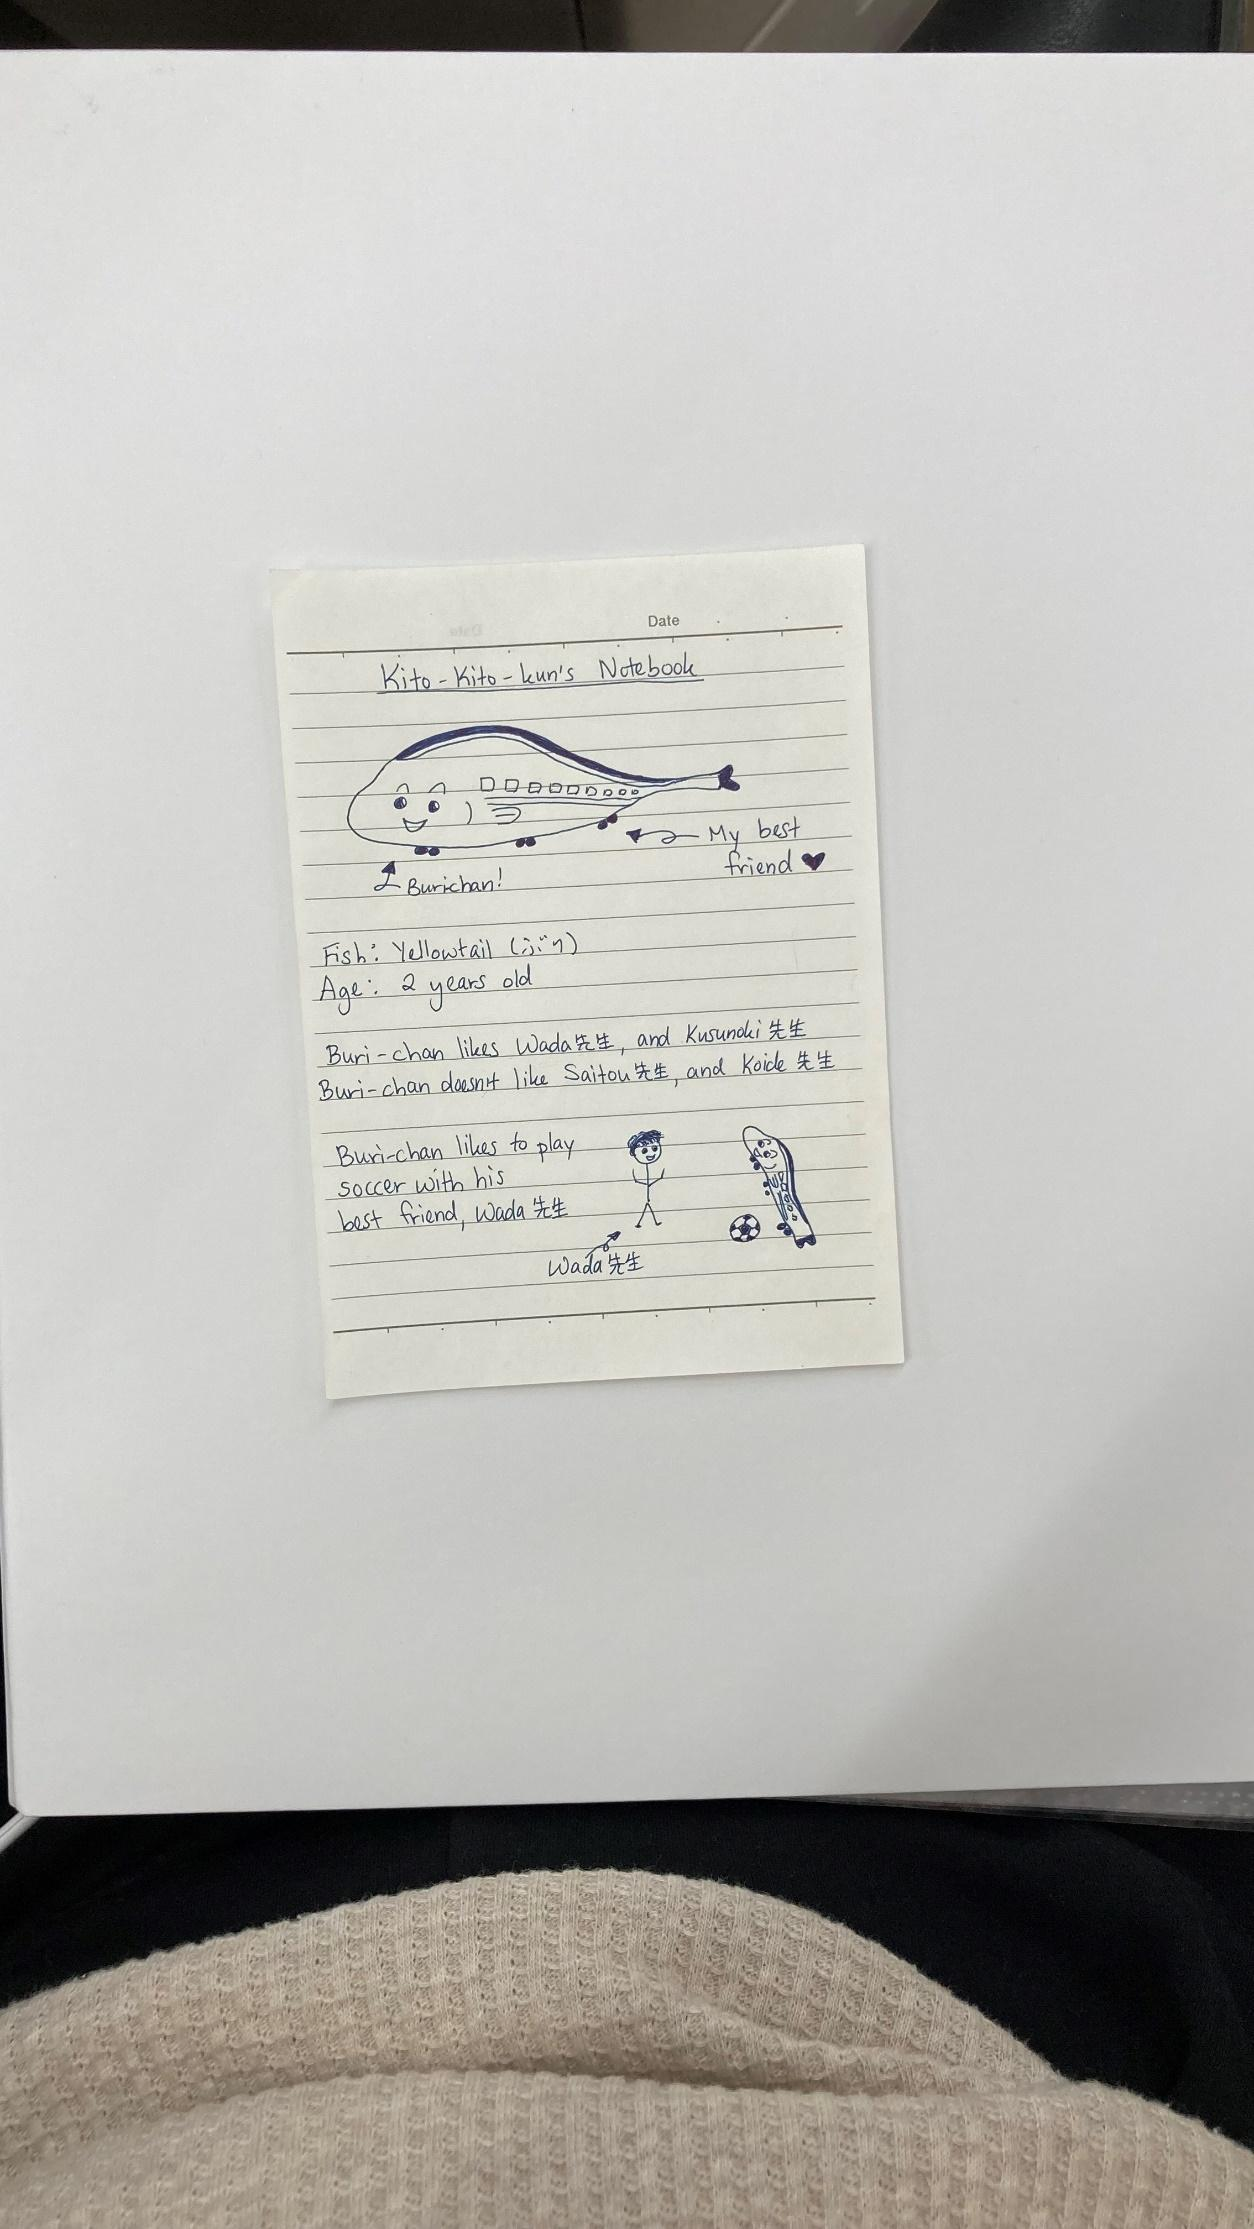 Date
Kito-Kito-kun's Notebook
My best
friend ♥
Burichan!
Fish: Yellowtail (ぶり)
Age: 2 years old
Buri-chan likes Wada先生, and Kusunoki先生
Buri-chan doesn't like Saitou先生, and Koide先生
Buri-chan likes to play
soccer with his
best friend, Wada先生
Wada先生